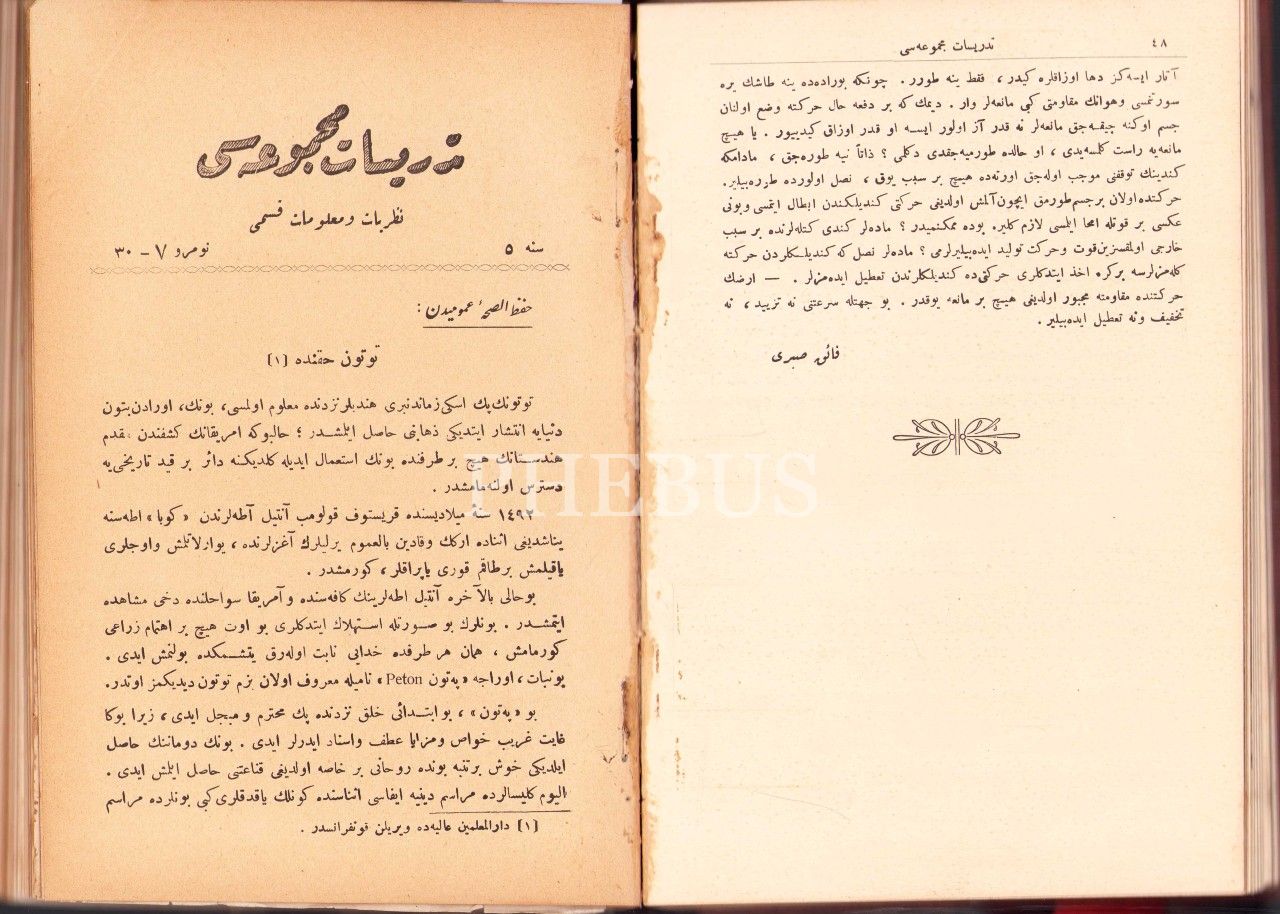 ٤٨
تدریسات مجموعه‌سی
آتار ایسه‌كز دها اوزاقلره كیدر ، فقط ینه طورر . چونكه بوراده‌ده ینه طاشك یره
سورتمسی وهوانك مقاومتی كبی مانعه‌لر وار . دیمك كه بر دفعه حال حركته وضع اولنان
جسم اوكنه چیقه‌جق مانعه‌لر نه قدر آز اولور ایسه او قدر اوزاق كیدییور . یا هیچ
مانعه‌یه راست كلسه‌یدی ، او حالده طورمیه‌جقدی دكلی ؟ ذاتاً نیه طوره‌جق ، مادامكه
كندینك توقفنی موجب اوله‌جق اورته‌ده هیچ بر سبب یوق ، نصل اولورده طوره‌بیلیر.
حركتده‌اولان برجسم‌طورمق ایچون‌آلمش اولدیغی حركتی كندیلكندن ابطال ایتمسی وبونی
عكسی بر قوتله امحا ایلمسی لازم كلیر. بوده ممكنمیدر ؟ ماده‌لر كندی كتله‌لرنده بر سبب
خارجی اولمقسزین‌قوت وحركت تولید ایده‌بیلیرلرمی ؟ ماده‌لر نصل كه كندیلـكلردن حركته
كله‌مزلرسه بركره اخذ ایتدكلری حركتی‌ده كندیلكلرندن تعطیل ایده‌مزلر . — ارضك
حركتنده مقاومته مجبور اولدیغی هیچ بر مانعه یوقدر . بو جهتله سرعتنی نه تزیید ، نه
تخفیف ونه تعطیل ایده‌بیلیر .
فائق صبری
تدریسات مجموعه‌سی
نظریات ومعلومات قسمی
سنه ٥
نومرو ٧ – ٣٠
حفظ الصحهٔ عمومیدن :
توتون حقنده (١)
توتونك‌پك اسكی‌زماندنبری هندیلرنزدنده معلوم اولمسی، بونك، اورادن‌بتون
دنیایه انتشار ایتدیكی ذهابنی حاصل ایلمشـدر ؛ حالبوكه امریقانك كشفندن مقدم
هندسـتانك هیچ بر طرفنده بونك استعمال ایدیله كلدیكنه دائر بر قید تاریخی‌یه
دسترس اولنه‌مامشدر .
١٤٩٢ سنهٔ میلادیسنده قریستوف قولومب آنتیل آطه‌لرندن «كوبا» اطه‌سنه
یناشدیغی اثناده اركك وقادین بالعموم یرلیلرك آغزلرنده ، یوارلاتلمش واوجلری
یاقیلمش برطاقم قوری یاپراقلر ، كورمشدر .
بوحالی بالآخره آنتیل اطه‌لرینك كافه‌سنده وآمریقا سواحلنده دخی مشاهده
ایتمشـدر . بونلرك بو صـورتله اسـتهلاك ایتدكلری بو اوت هیچ بر اهتمام زراعی
كورمامش ، همان هر طرفده خدایی نابت اوله‌رق یتشـمكده بولنمش ایدی .
بونبات ، اوراجه «په‌تون Peton» نامیله معروف اولان بزم توتون دیدیكمز اوتدر.
بو «په‌تون» ، بوابتـدائی خلق نزدنده پك محترم و مبجل ایدی ، زیرا بوكا
غایت غریب خواص ومزایا عطف واسناد ایدرلر ایدی . بونك دوماننك حاصل
ایلدیكی خوش برتنبه بونده روحانی بر خاصه اولدیغی قناعتنی حاصل ایلمش ایدی .
الیوم كلیسالرده مراسم دینیه ایفاسی اثناسنده كونلك یاقدقلری كبی بونلرده مراسم
(١) دارالمعلمین عالیه‌ده ویریلن قونفرانسدر .
PHEBUS